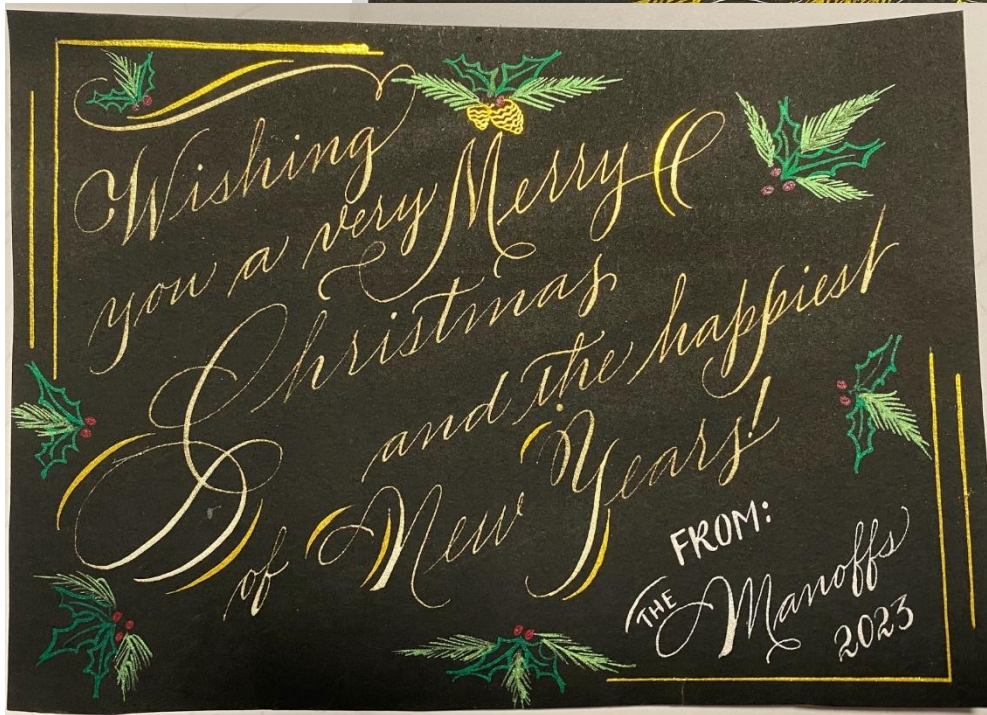 Wishing
you a very Merry
Christmas
and the happiest
of New Years!
FROM:
THE Manoffs
2023